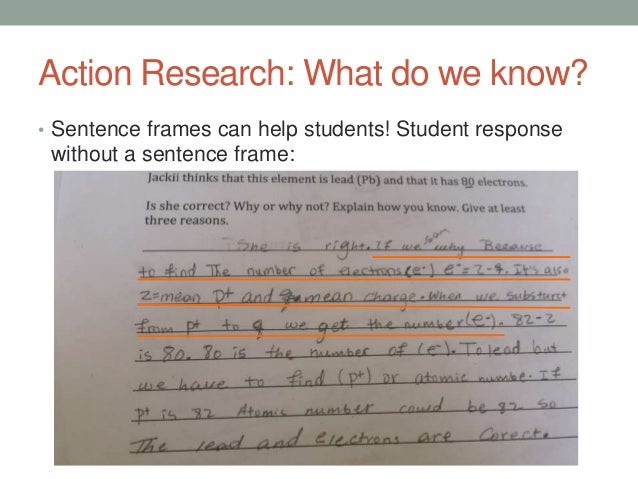 Action Research: What do we know?
• Sentence frames can help students! Student response
without a sentence frame:
Jackii thinks that this element is lead (Pb) and that it has 80 electrons.
Is she correct? Why or why not? Explain how you know. Give at least
three reasons.
She is right. If we son why Because
to find The number of electrons(e-) e-=z-q. It's also
z=mean p+ and q mean charge. When we substurct
from p+ to q we get the number(e-). 82-2
is 80. 80 is the number of (e-). To lead but
we have to find (p+) or atomic numbe. If
p+ is 82 Atomic number could be 82 so
The lead and electrons are Corect.